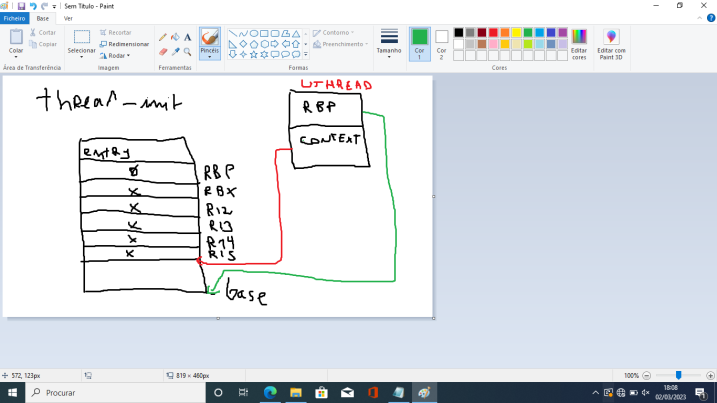 Sem Título - Paint
Ficheiro Base Ver
Colar
Cortar
Copiar
Área de Transferência
Selecionar
Recortar
Redimensionar
Rodar
Imagem
Ferramentas
Pincéis
Contorno
Preenchimento
Formas
Tamanho
Cor
1
Cor
2
Editar
cores
Cores
Editar com
Paint 3D
thread_init
UTHREAD
RBP
CONTEXT
entry
0 RBP
x RBX
x R12
x R13
x R14
x R15
base
572, 123px
819 × 460px
100%
Procurar
18:08
02/03/2023